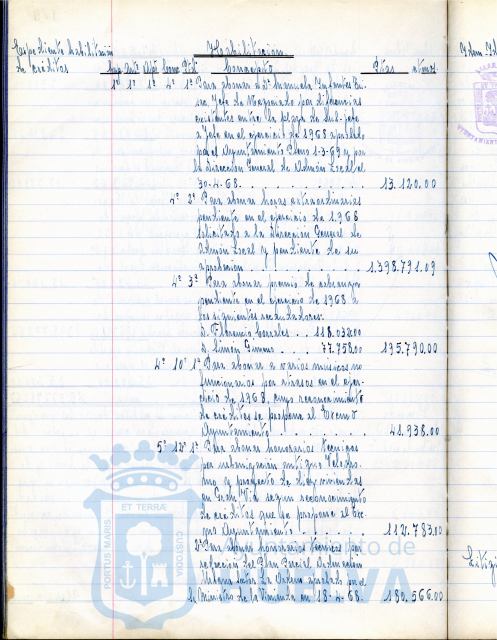 Expediente habilitación
de Créditos
Habilitación
Cap. Artº Cpto Ptdª Concepto Ptas ctmos.
1º 1º 1º 4º 1º Para abonar a Dª Manuela Infantes
Jefe de Negociado por diferencias
existentes entre la plaza de Sub-jefe
a Jefe en el ejercicio de 1968 aprobado
por el Ayuntamiento Pleno 1-3-67 y por
la Dirección General de Admón Local el
30-4-68. 13.120.00
4º 2º Para abonar horas extraordinarias
pendiente en el ejercicio de 1.968
solicitado a la Dirección General de
Admón Local y pendiente de su
aprobación 1.398.791.09
4º 3º Para abonar premio de cobranza
pendiente en el ejercicio de 1968 a
los siguientes recaudadores:
D. Florencio Corrales . . 118.032.00
D. Simón Gimeno . . . 77.758.00 195.790.00
4º 10º 1º Para abonar a varios músicos no
funcionarios por atrasos en el ejer-
cicio de 1968, cuyo reconocimiento
de créditos se propone al Excmo
Ayuntamiento 41.938.00
5º 12º 1º Para abonar honorarios técnicos
por urbanización antiguo Velódro-
mo y proyecto de diez viviendas
en Gran Vía según reconocimiento
de créditos que se propone al Exc-
mo Ayuntamiento 112.783.00
2º Para abonar honorarios técnicos por
redacción del Plan Parcial Ordenación
Urbana aprobado por
el Ministro de la Vivienda en 18-4-68. 180.566.00
PORTUS MARIS
ET TERRÆ
CUSTODIA
Ayuntamiento de
HUELVA